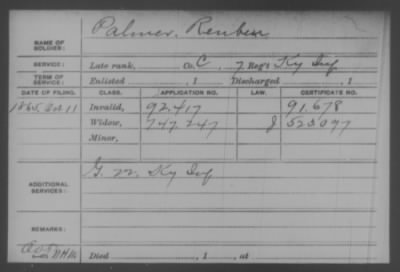 Palmer, Reuben
NAME OF SOLDIER:
SERVICE: Late rank, Co. C, 7 Reg't Ky Inf
TERM OF SERVICE: Enlisted , 1 Discharged , 1
DATE OF FILING. CLASS. APPLICATION NO. LAW. CERTIFICATE NO.
1865 Oct 11 Invalid, 92.417 91.678
Widow, 747.247 J 525097
Minor,
ADDITIONAL SERVICES: G. M. Ky Inf
REMARKS:
Died , 1 , at